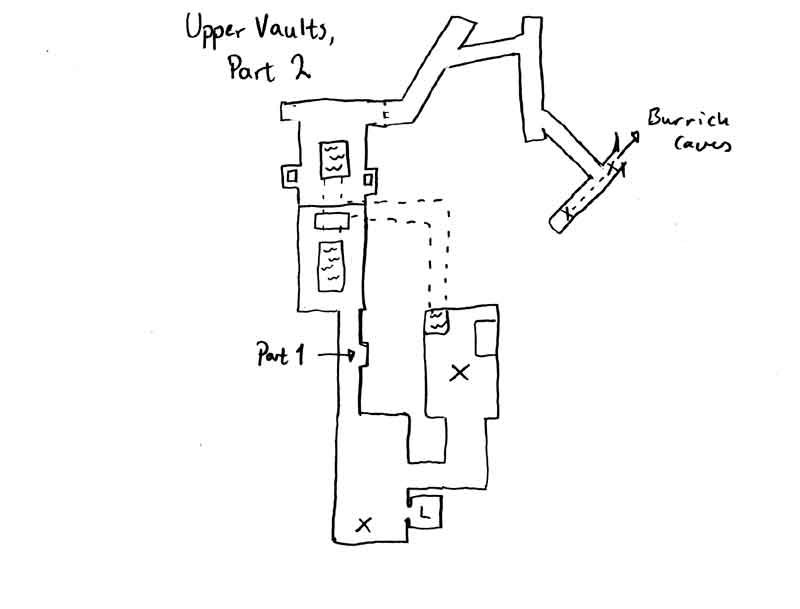 Upper Vaults,
Part 2
Burrick
caves
Part 1
X
X
X
X
L